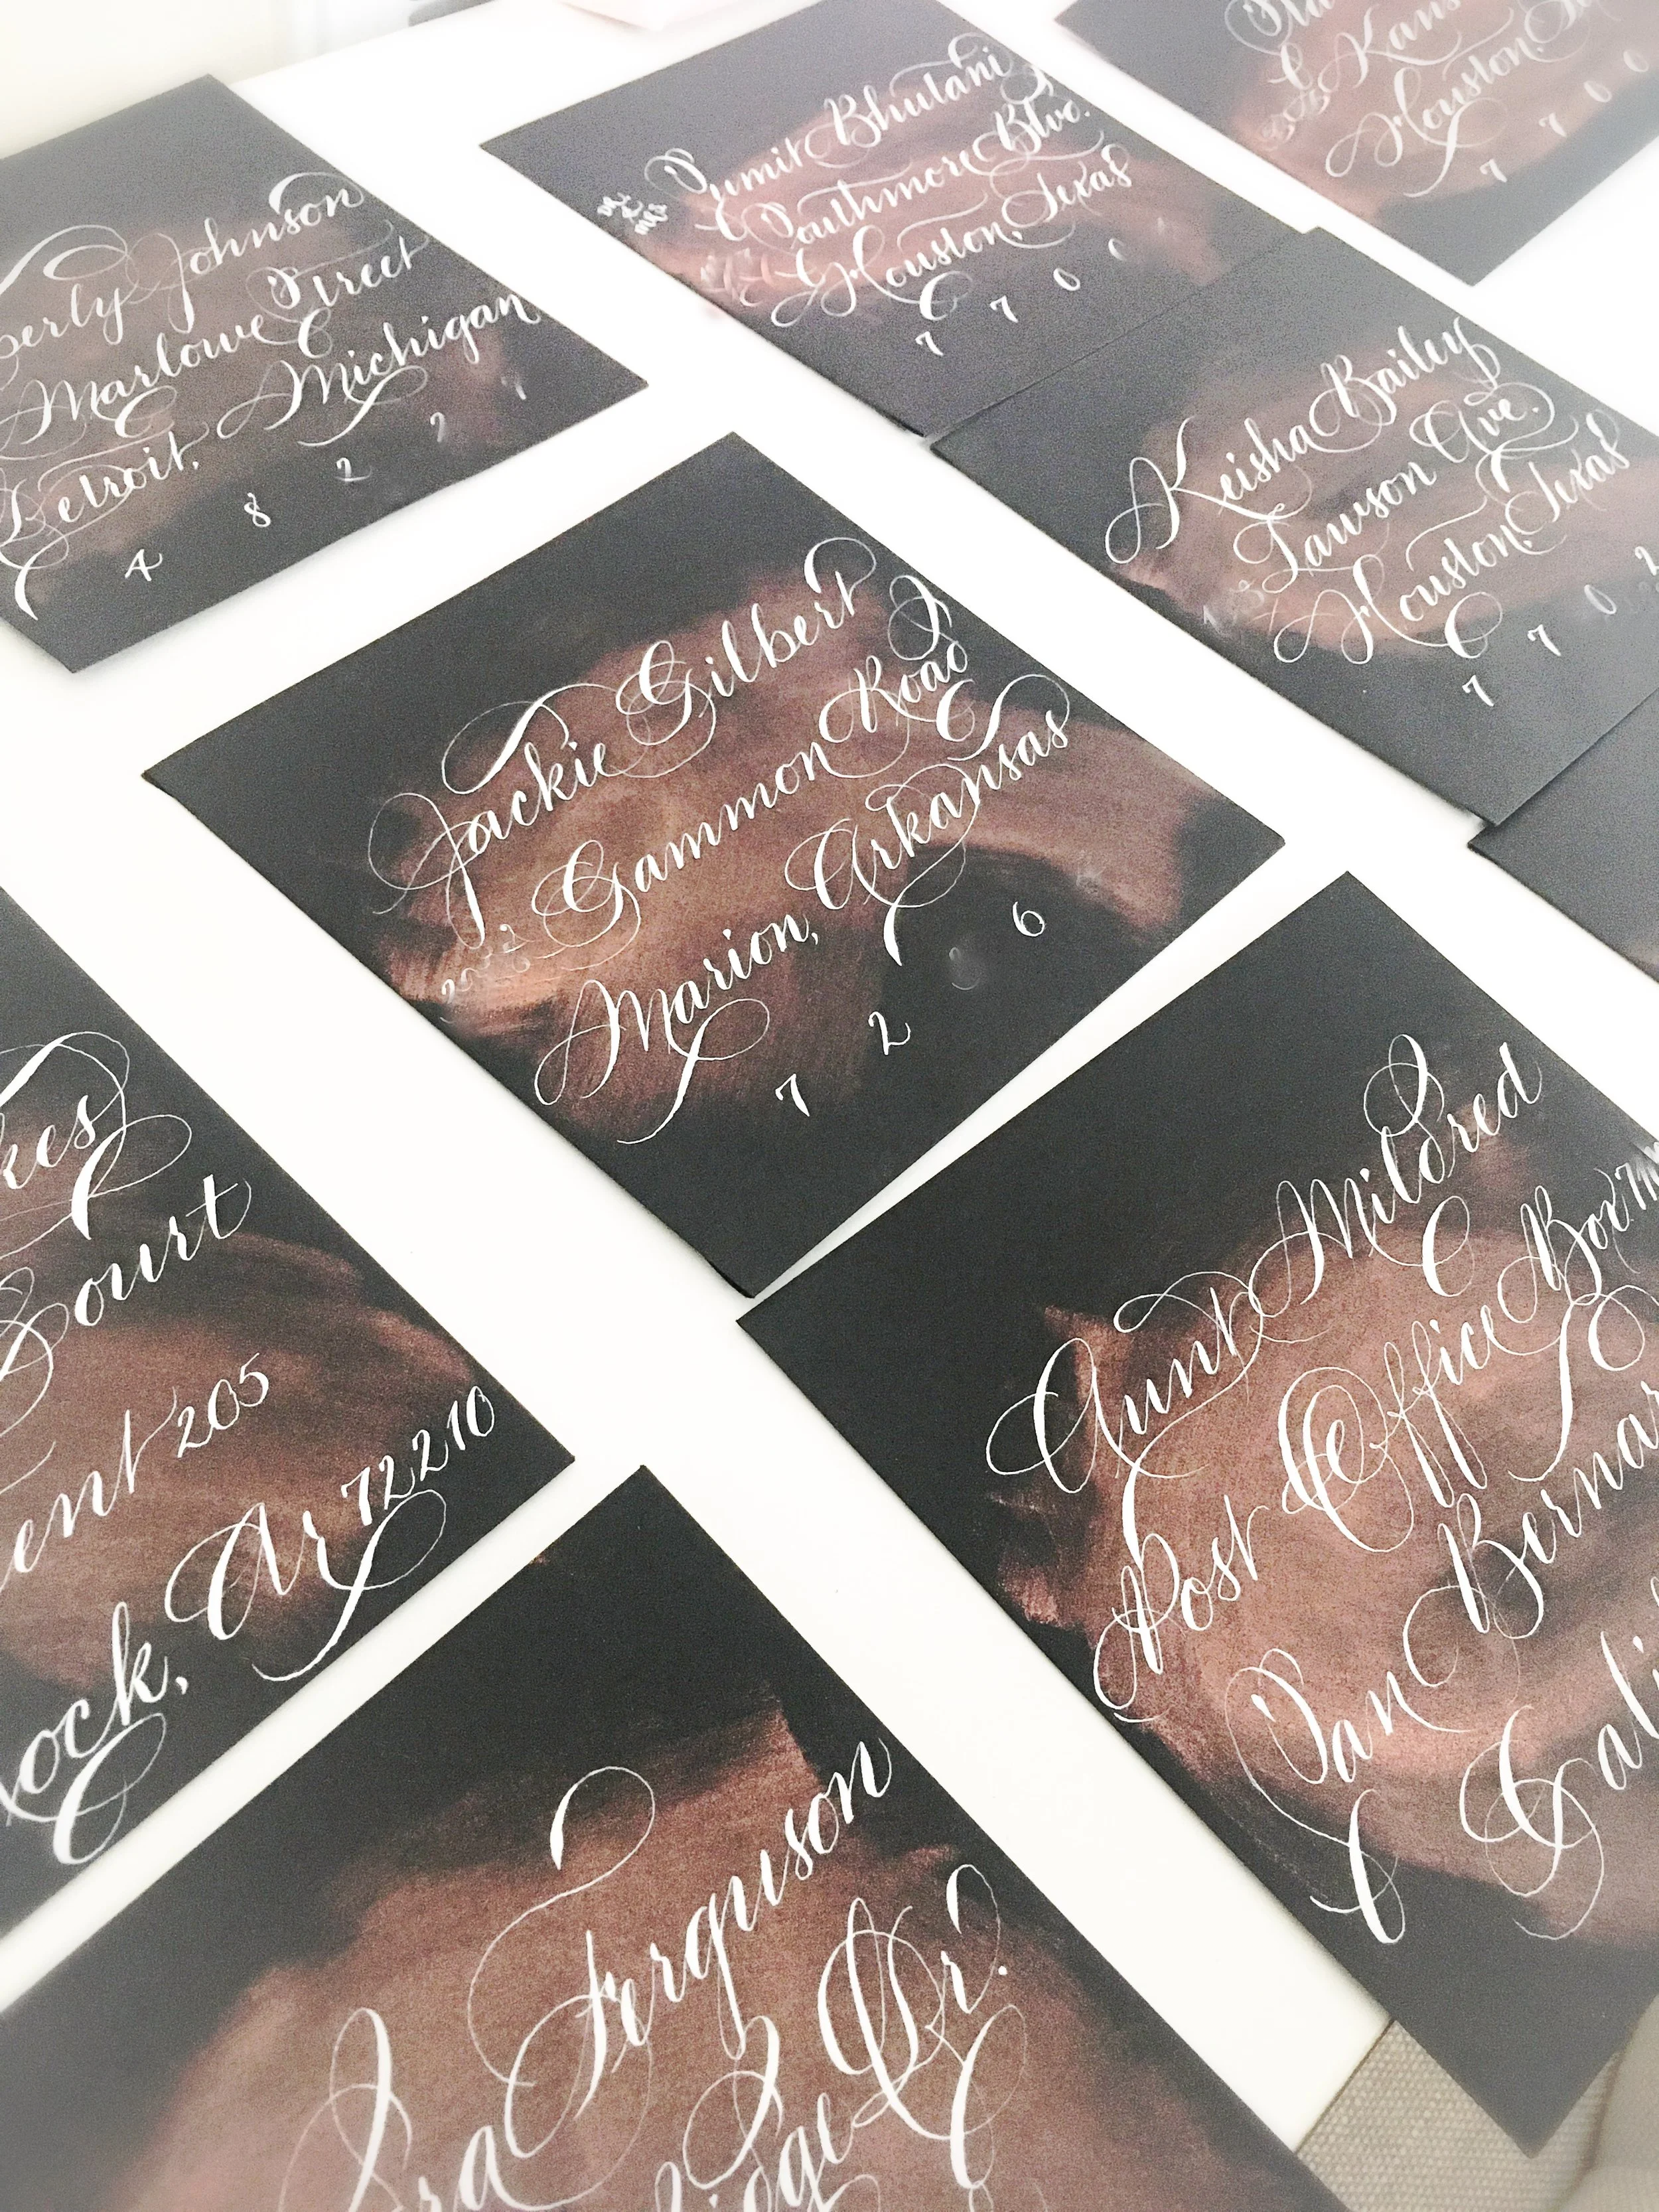 Johnson
Marlowe Street
Detroit, Michigan
4 8 2 2
Sumit Bhutani
Southmore Blvd.
Houston, Texas
7 7 0 0
Houston,
7 7 0 0
Keisha Bailey
Lawson Ave.
Houston, Texas
7 7 0 2
Jackie Gilbert
Gammon Road
Marion, Arkansas
7 2 6
Court
205
ock, Ar 72210
Aunt Mildred
Post Office Box
San Bernar
Cali
Ferguson
Dr.